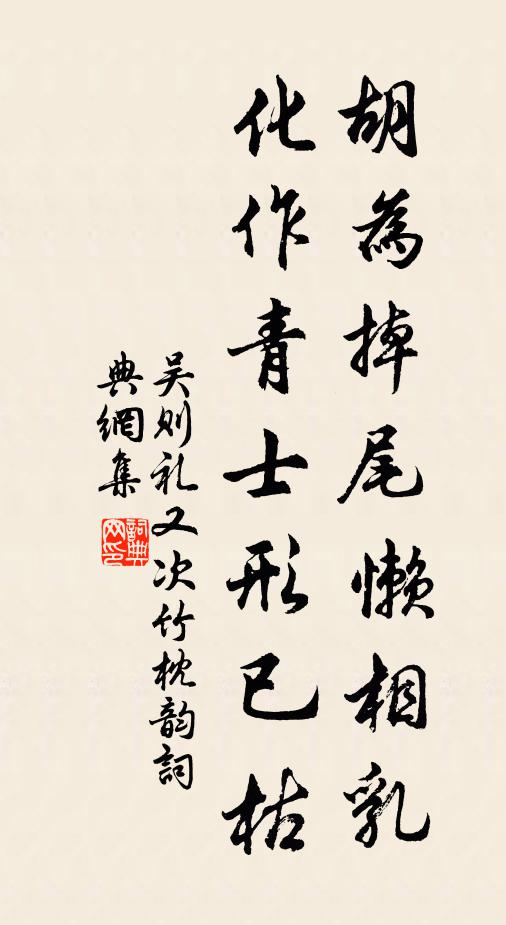 胡為掉尾懶相乳
化作青士形已枯
吴則礼又次竹枕韵詞
典網集
詞典
网印